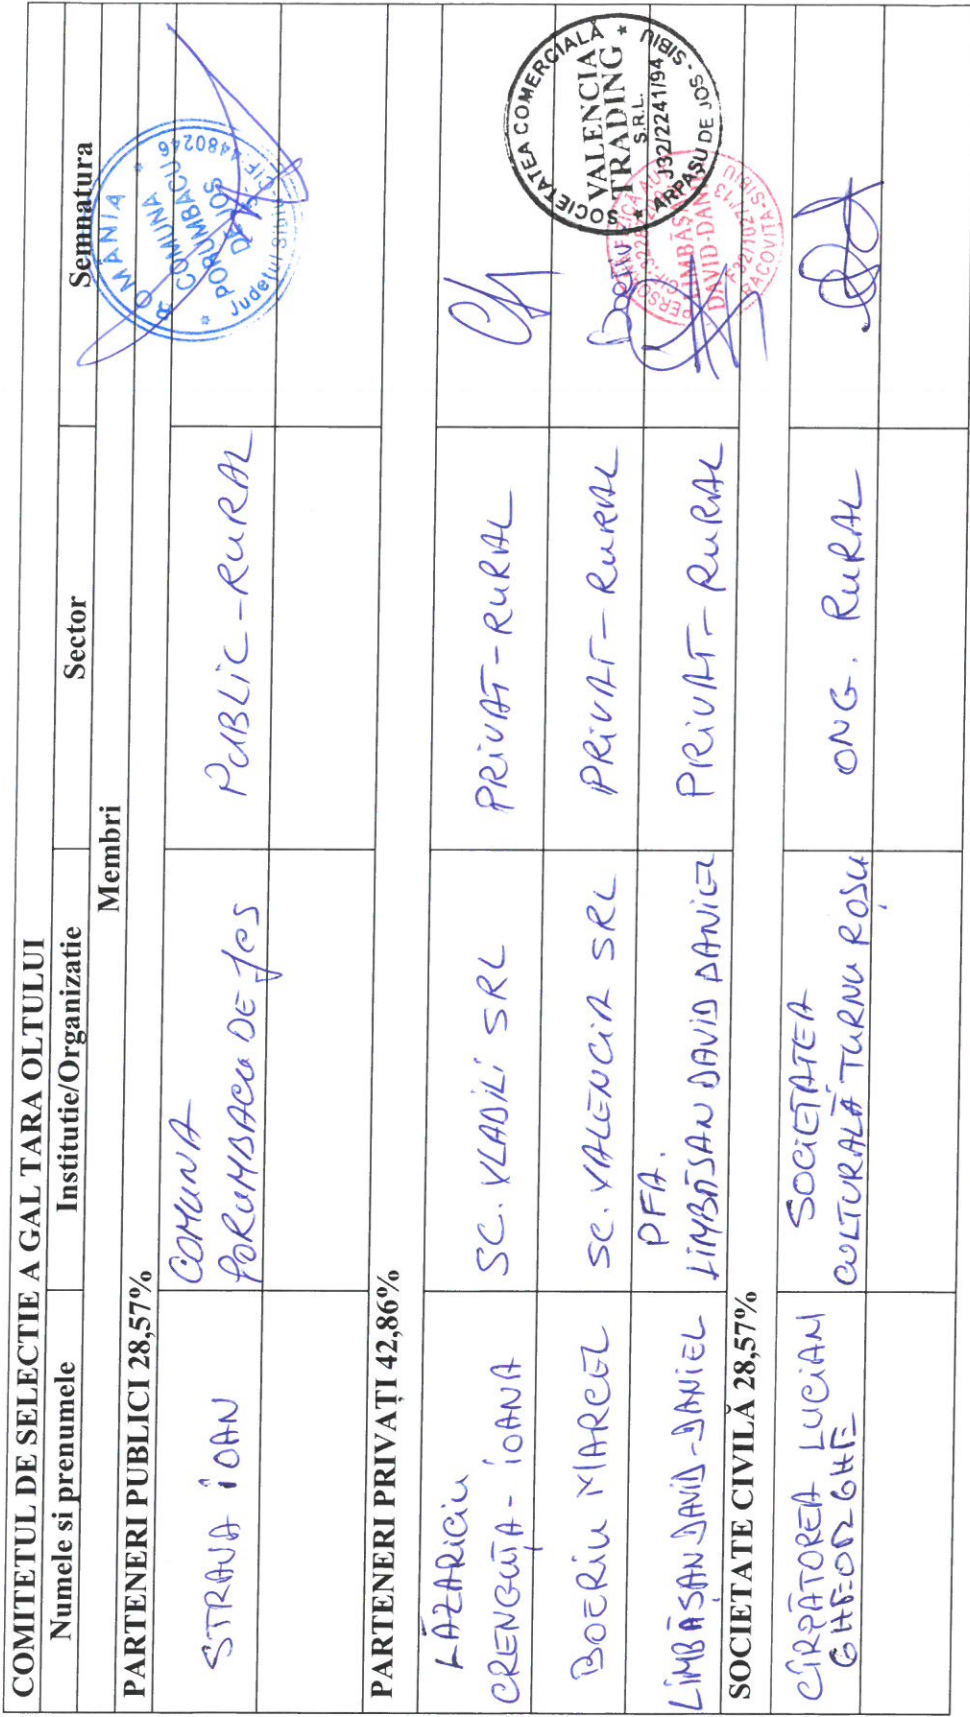 COMITETUL DE SELECTIE A GAL TARA OLTULUI
Numele si prenumele Institutie/Organizatie Sector Semnatura
Membri
PARTENERI PUBLICI 28,57%
STRAVA IOAN
COMUNA
PORUMBACU DE JOS
PUBLIC-RURAL
ROMÂNIA
COMUNA
PORUMBACU
DE JOS
Judetul Sibiu CIF:4480246
PARTENERI PRIVAȚI 42,86%
LĂZARICIU
CRENGUȚA-IOANA
SC. VLADILI SRL
PRIVAT-RURAL
BOERIU MARCEL
SC. VALENCIA SRL
PRIVAT-RURAL
Boeriu
SOCIETATEA COMERCIALĂ
VALENCIA
TRADING
S.R.L.
J32/2241/94
ARPAȘU DE JOS - SIBIU
LIMBĂȘAN DAVID-DANIEL
PFA.
LIMBĂȘAN DAVID DANIEL
PRIVAT-RURAL
LIMBĂȘAN
DAVID-DAN
F32/1027/'13
RACOVITA-SIBIU
SOCIETATE CIVILĂ 28,57%
CÎRPĂTOREA LUCIAN
GHEORGHE
SOCIETATEA
CULTURALĂ TURNU ROȘU
ONG. RURAL